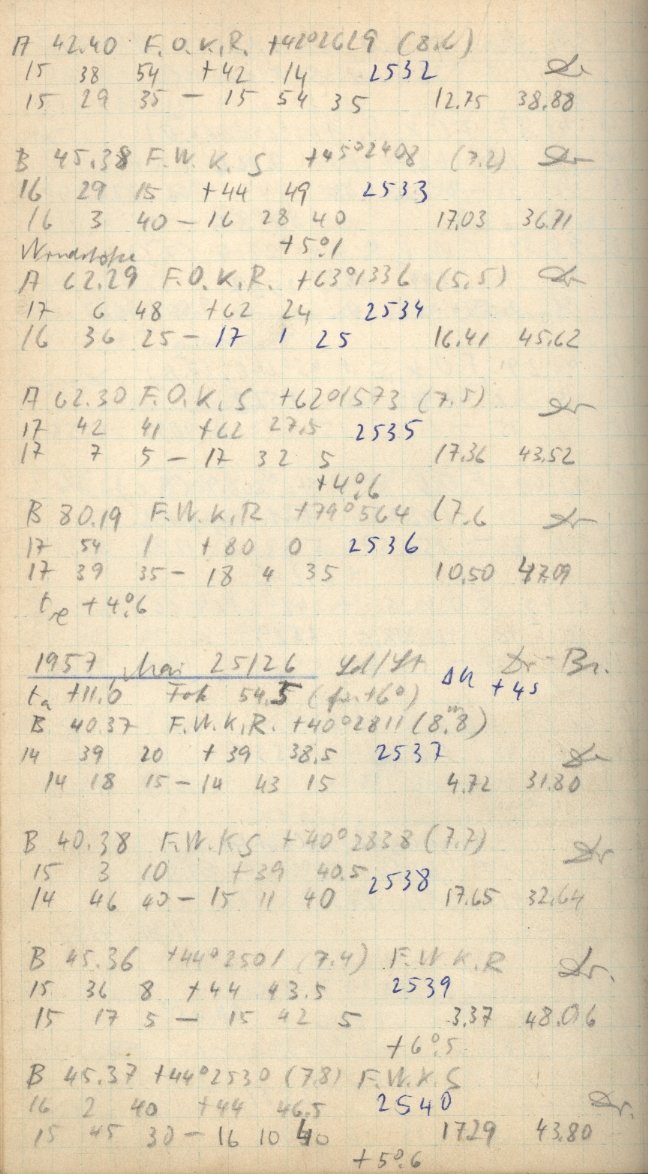 A 42.40 F.O.K.R. +42°2629 (8.6)
15 38 54 +42 14 2532 Dr
15 29 35 – 15 54 35 12.75 38.88
B 45.38 F.W.K.S +45°2408 (7.2) Dr
16 29 15 +44 49 2533
16 3 40 – 16 28 40 17.03 36.71
Windstöße +5°.1
A 62.29 F.O.K.R. +63°1336 (5.5) Dr
17 6 48 +62 24 2534
16 36 25 – 17 1 25 16.41 45.62
A 62.30 F.O.K.S +62°1573 (7.5) Dr
17 42 41 +62 27.5 2535
17 7 5 – 17 32 5 17.36 43.52
+4°.6
B 80.19 F.W.K.R +79°564 (7.6 Dr
17 54 1 +80 0 2536
17 39 35 – 18 4 35 10.50 47.09
+4°.6
1957 Mai 25/26 Dr – Br.
ta +11.0 Fok 54.5 (für +6°) Δu +4s
B 40.37 F.W.K.R. +40°2811 (8.m8)
14 39 20 +39 38.5 2537 Dr
14 18 15 – 14 43 15 4.72 31.80
B 40.38 F.W.K.S +40°2838 (7.7) Dr
15 3 10 +39 40.5 2538
14 46 40 – 15 11 40 17.65 32.64
B 45.36 +44°2501 (7.4) F.W.K.R Dr.
15 36 8 +44 43.5 2539
15 17 5 – 15 42 5 3.37 48.06
+6°.5
B 45.37 +44°2530 (7.8) F.W.K.S
16 2 40 +44 46.5 2540 Dr.
15 45 30 – 16 10 40 17.29 43.80
+5°.6